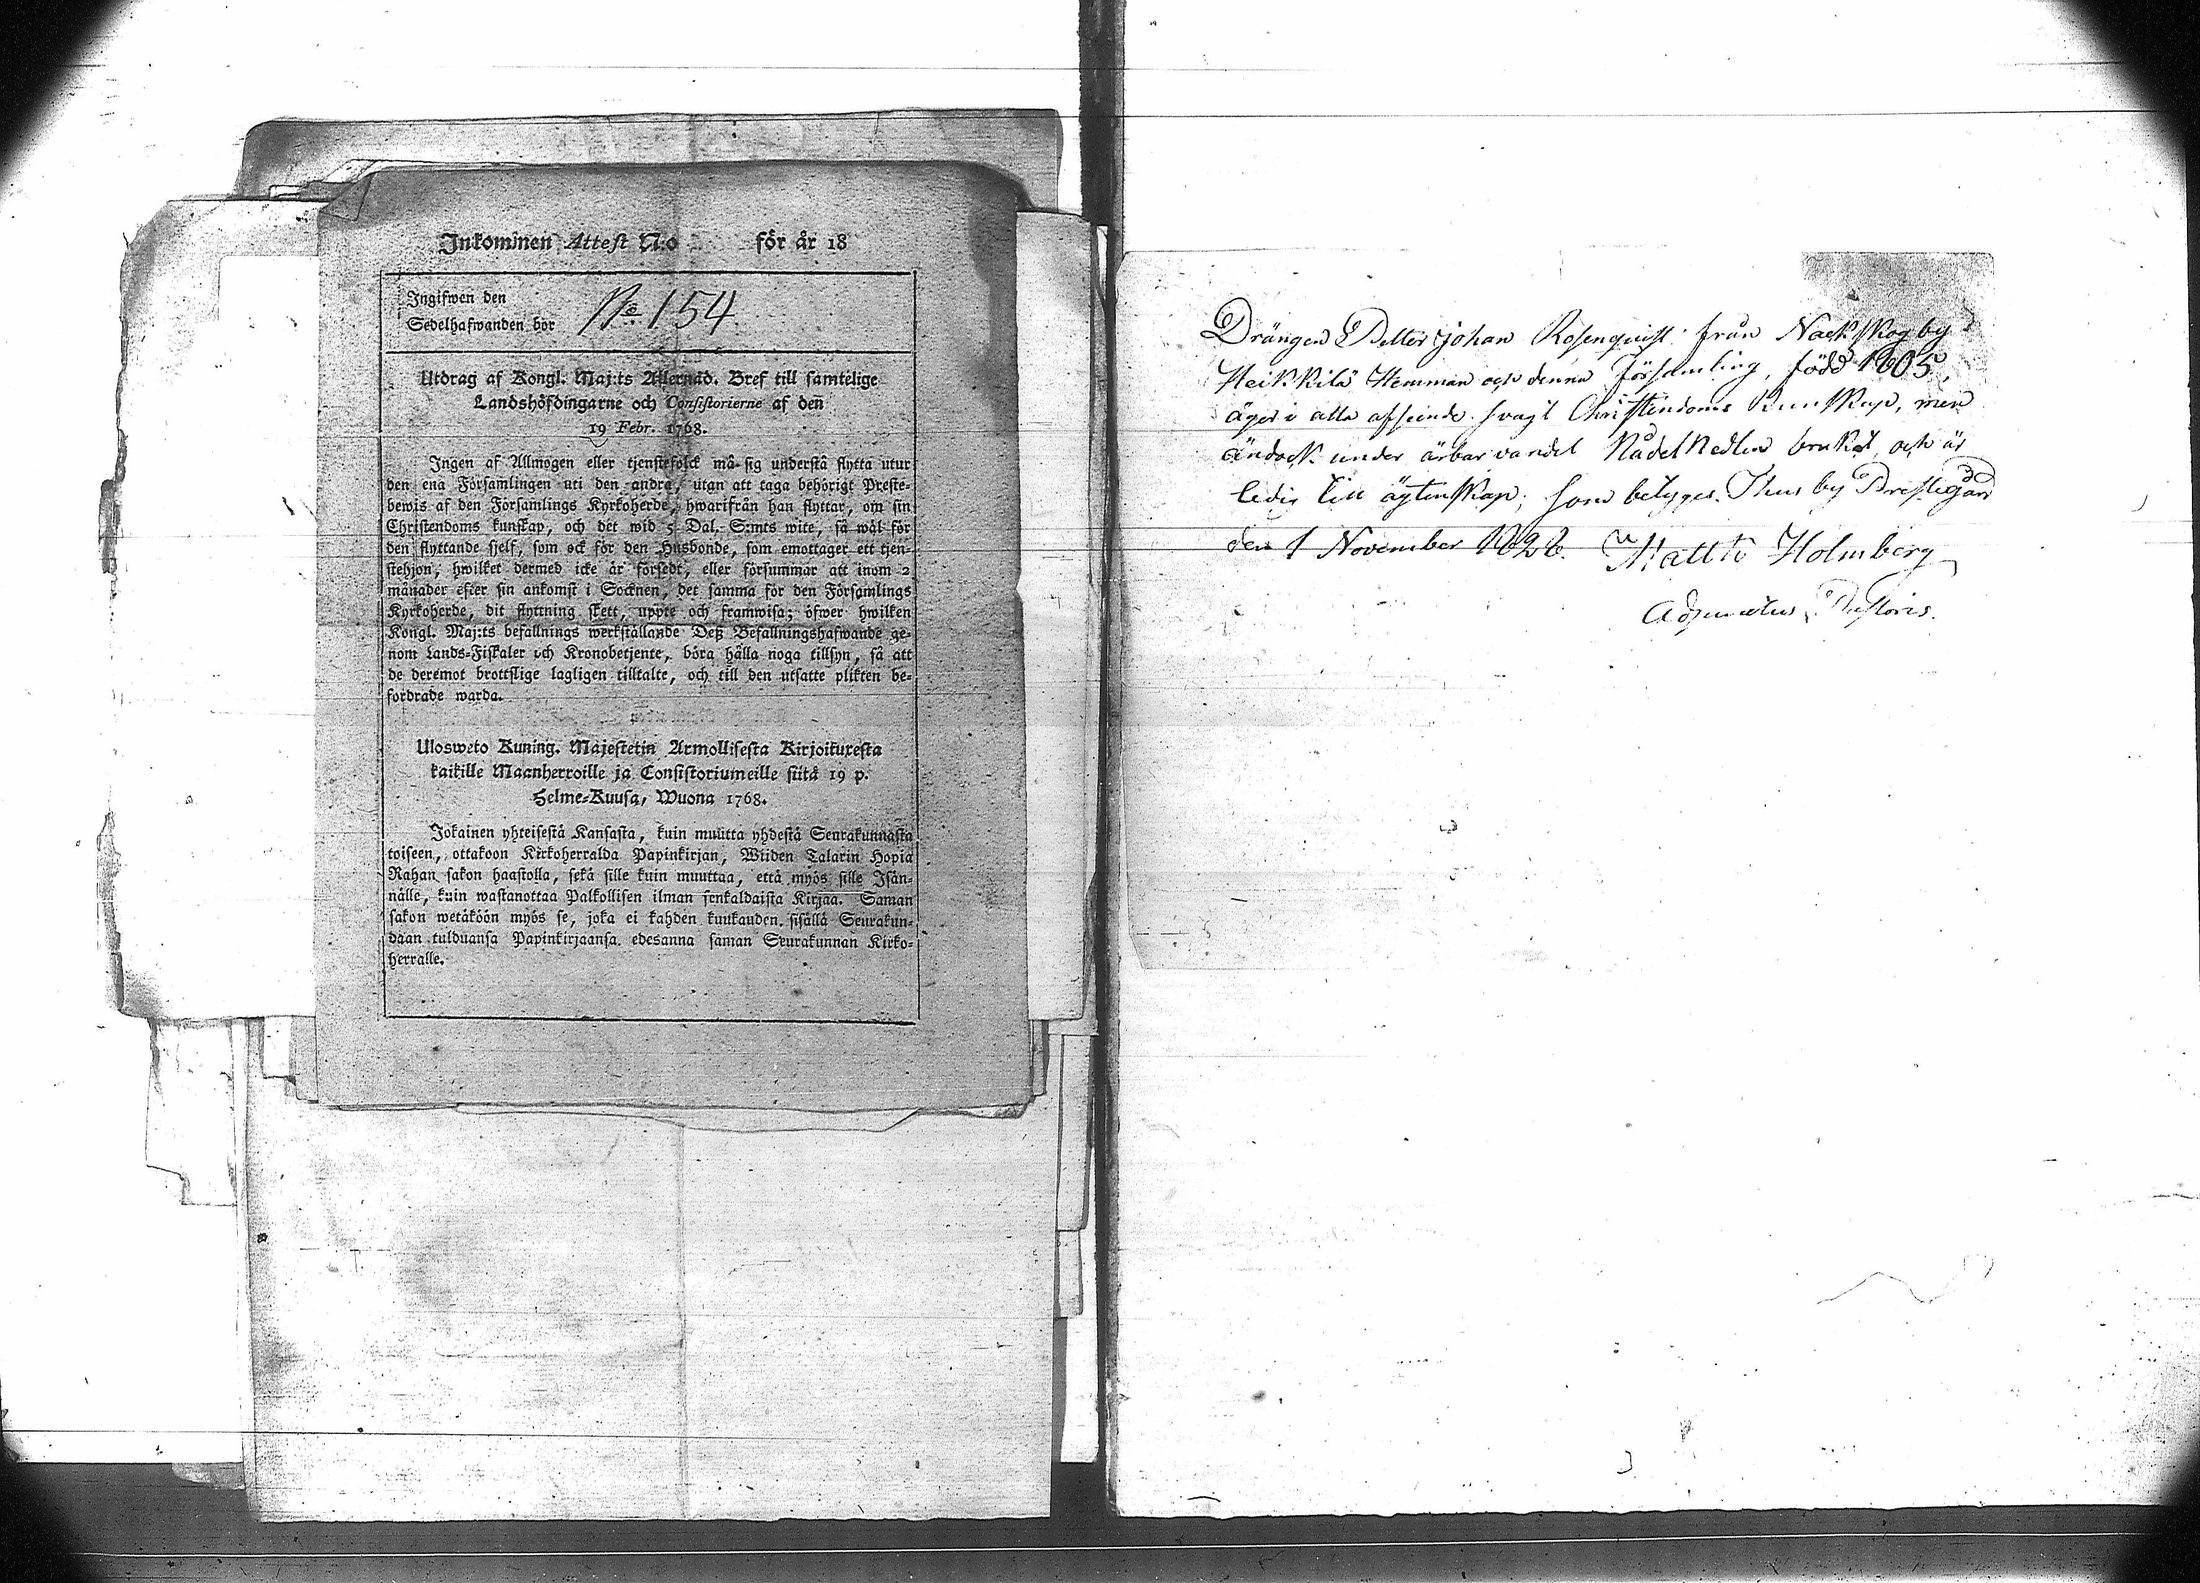 Inkommen Attest N:o för år 18
Ingifwen den
Sedelhafwanden bör
No. 154
Utdrag af Kongl. Maj:ts Allernåd. Bref till samtelige
Landshöfdingarne och Consistorierne af den
19 Febr. 1768.
Ingen af Allmogen eller tjenstefolck må sig understå flytta utur
den ena Församlingen uti den andra, utan att taga behörigt Preste-
bewis af den Församlings Kyrkoherde, hwarifrån han flyttar, om sin
Christendoms kunskap, och det wid 5 Dal. S:mts wite, så wäl för
den flyttande sjelf, som ock för den Husbonde, som emottager ett tjen-
stehjon, hwilket dermed icke är försedt, eller försummar att inom 2
månader efter sin ankomst i Socknen, det samma för den Församlings
Kyrkoherde, dit flyttning skett, uppte och framwisa; öfwer hwilken
Kongl. Maj:ts befallnings werkställande Deß Befallningshafwande ge-
nom Lands-Fiskaler och Kronobetjente, böra hålla noga tillsyn, så att
de deremot brottslige lagligen tilltalte, och till den utsatte plikten be-
fordrade warda.
Ulosweto Kuning. Majestetin Armollisesta Kirjoituresta
kaikille Maanherroille ja Consistoriumeille siitä 19 p.
Helme-Kuusa, Wuona 1768.
Jokainen yhteisestä Kansasta, kuin muutta yhdestä Seurakunnasta
toiseen, ottakoon Kirkoherralda Papinkirjan, Wiiden Talarin Hopia
Rahan sakon haastolla, sekä sille kuin muuttaa, että myös sille Isän-
nälle, kuin wastanottaa Palkollisen ilman senkaldaista Kirjaa. Saman
sakon wetäköön myös se, joka ei kahden kuukauden sisällä Seurakun-
daan tulduansa Papinkirjaansa edesanna saman Seurakunnan Kirko-
herralle.
Drängen Petter Johan Rosenquist från Nackskog by
Heikkilä Hemman och denna församling, född 1805,
äger i alla afseende svagt Christendoms kunskap, men
ändock under ärbar vandel Nådemedlen brukat, och är
ledig till ägtenskap; som betygas. Thusby Prestegård
den 1 November 1826. Matth Holmberg
Adjunctus Pastoris.